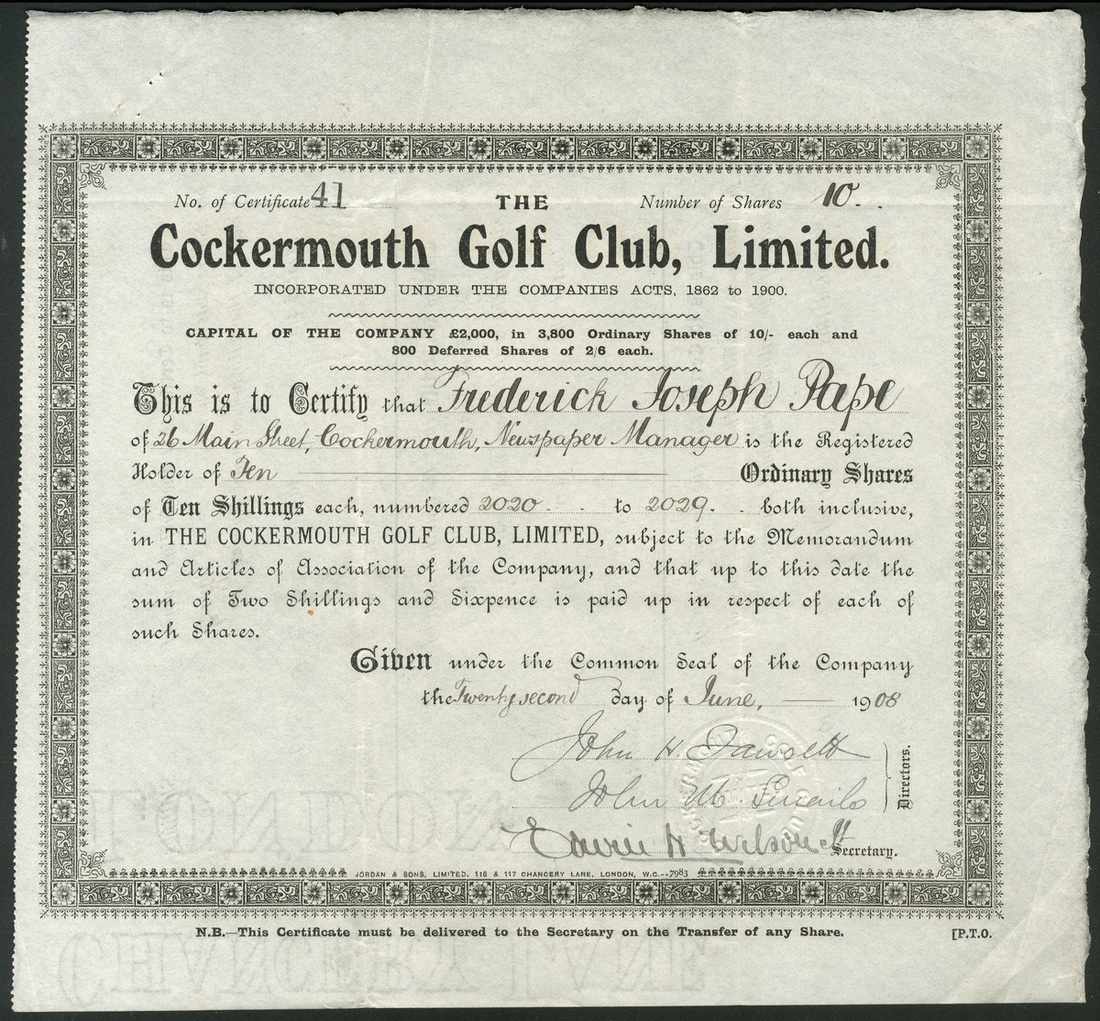 No. of Certificate 41 THE Number of Shares 10.
Cockermouth Golf Club, Limited.
INCORPORATED UNDER THE COMPANIES ACTS, 1862 to 1900.
CAPITAL OF THE COMPANY £2,000, in 3,800 Ordinary Shares of 10/- each and
800 Deferred Shares of 2/6 each.
This is to Certify that Frederick Joseph Pape
of 26 Main Street, Cockermouth, Newspaper Manager is the Registered
Holder of Ten Ordinary Shares
of Ten Shillings each, numbered 2020 to 2029 both inclusive,
in THE COCKERMOUTH GOLF CLUB, LIMITED, subject to the Memorandum
and Articles of Association of the Company, and that up to this date the
sum of Two Shillings and Sixpence is paid up in respect of each of
such Shares.
Given under the Common Seal of the Company
the Twenty second day of June, 1908
John H Fawcett
John M.
Directors.
Edwin H Wilson
Secretary.
JORDAN & SONS, LIMITED, 116 & 117 CHANCERY LANE, LONDON, W.C.--7983
N.B.—This Certificate must be delivered to the Secretary on the Transfer of any Share. [P.T.O.